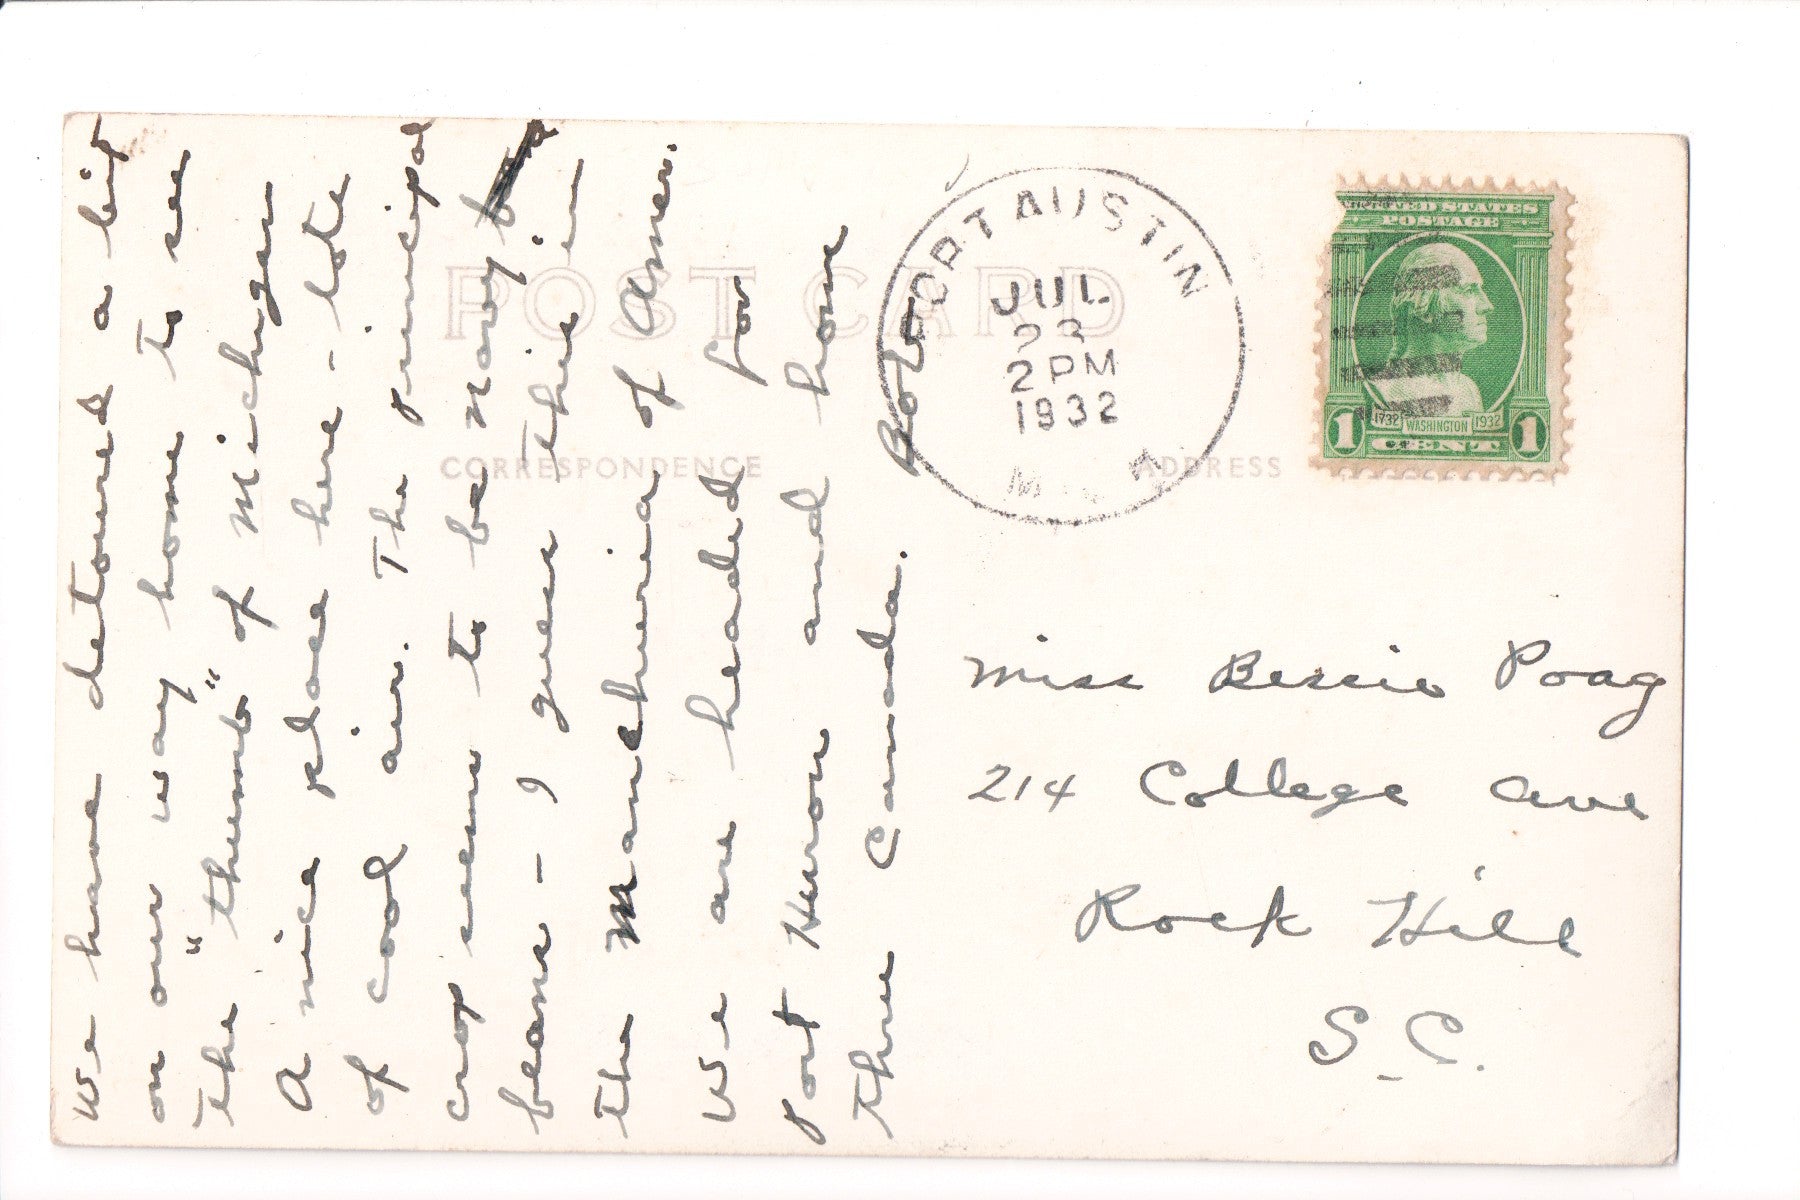 We have detoured a bit
on our way home to see
the "thumb" of Michigan
A nice place here - lots
of cool air. The principal
crop seems to be navy
beans - I guess this is
the Manchuria of Amer.
We are headed for
port Huron and home
thru Canada. Bob
POST CARD
CORRESPONDENCE
ADDRESS
PORT AUSTIN
JUL
23
2 PM
1932
UNITED STATES
POSTAGE
1732 WASHINGTON 1932
1 CENT 1
Miss Bessie Poag
214 College Ave
Rock Hill
S.C.